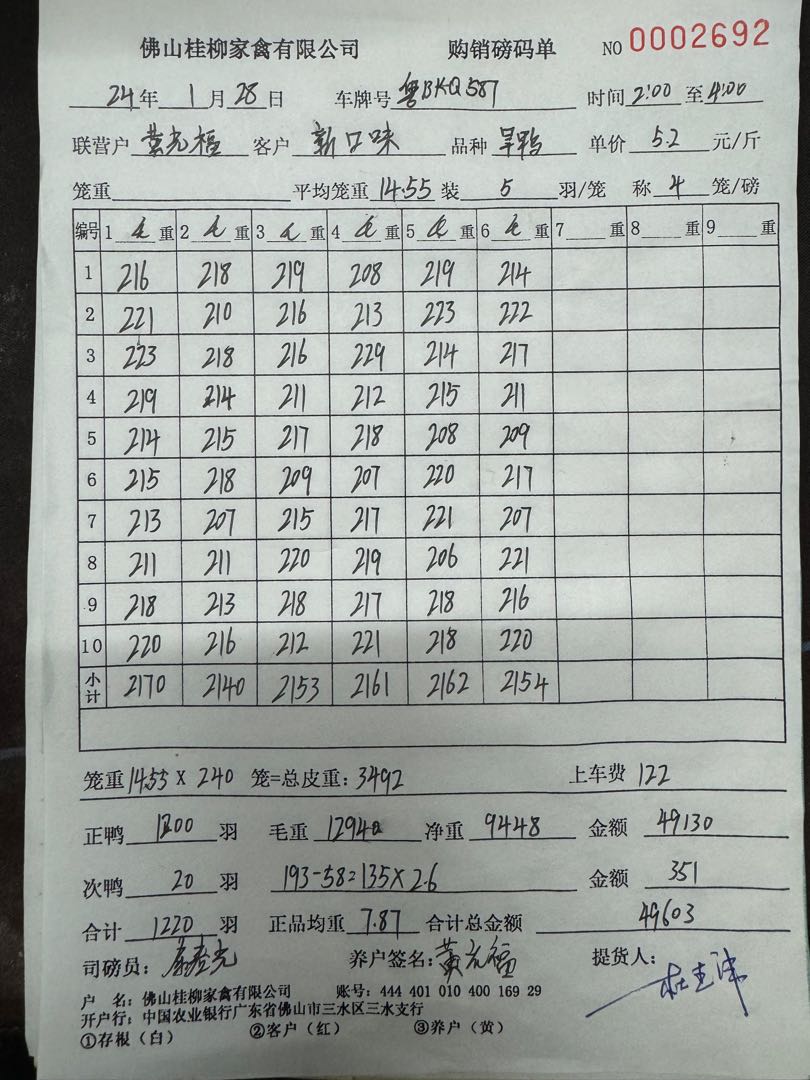 佛山桂柳家禽有限公司 购销磅码单 NO 0002692
24年 1月 28日 车牌号 粤BKQ587 时间 2:00 至 4:00
联营户 黄光福 客户 新口味 品种 旱鸭 单价 5.2 元/斤
笼重 平均笼重 14.55 装 5 羽/笼 称 4 笼/磅
编号 1 毛 重 2 毛 重 3 毛 重 4 毛 重 5 毛 重 6 毛 重 7 重 8 重 9 重
1 216 218 219 208 219 214
2 221 210 216 213 223 222
3 223 218 216 229 214 217
4 219 214 211 212 215 211
5 214 215 217 218 208 209
6 215 218 209 207 220 217
7 213 207 215 217 221 207
8 211 211 220 219 206 221
9 218 213 218 217 218 216
10 220 216 212 221 218 220
小计 2170 2140 2153 2161 2162 2154
笼重 14.55 X 240 笼=总皮重: 3492 上车费 122
正鸭 1200 羽 毛重 12940 净重 9448 金额 49130
次鸭 20 羽 193-58=135X2.6 金额 351
合计 1220 羽 正品均重 7.87 合计总金额 49603
司磅员: 养户签名: 黄光福 提货人:
户 名: 佛山桂柳家禽有限公司 账号: 444 401 010 400 169 29
开户行: 中国农业银行广东省佛山市三水区三水支行
①存根(白) ②客户(红) ③养户(黄)